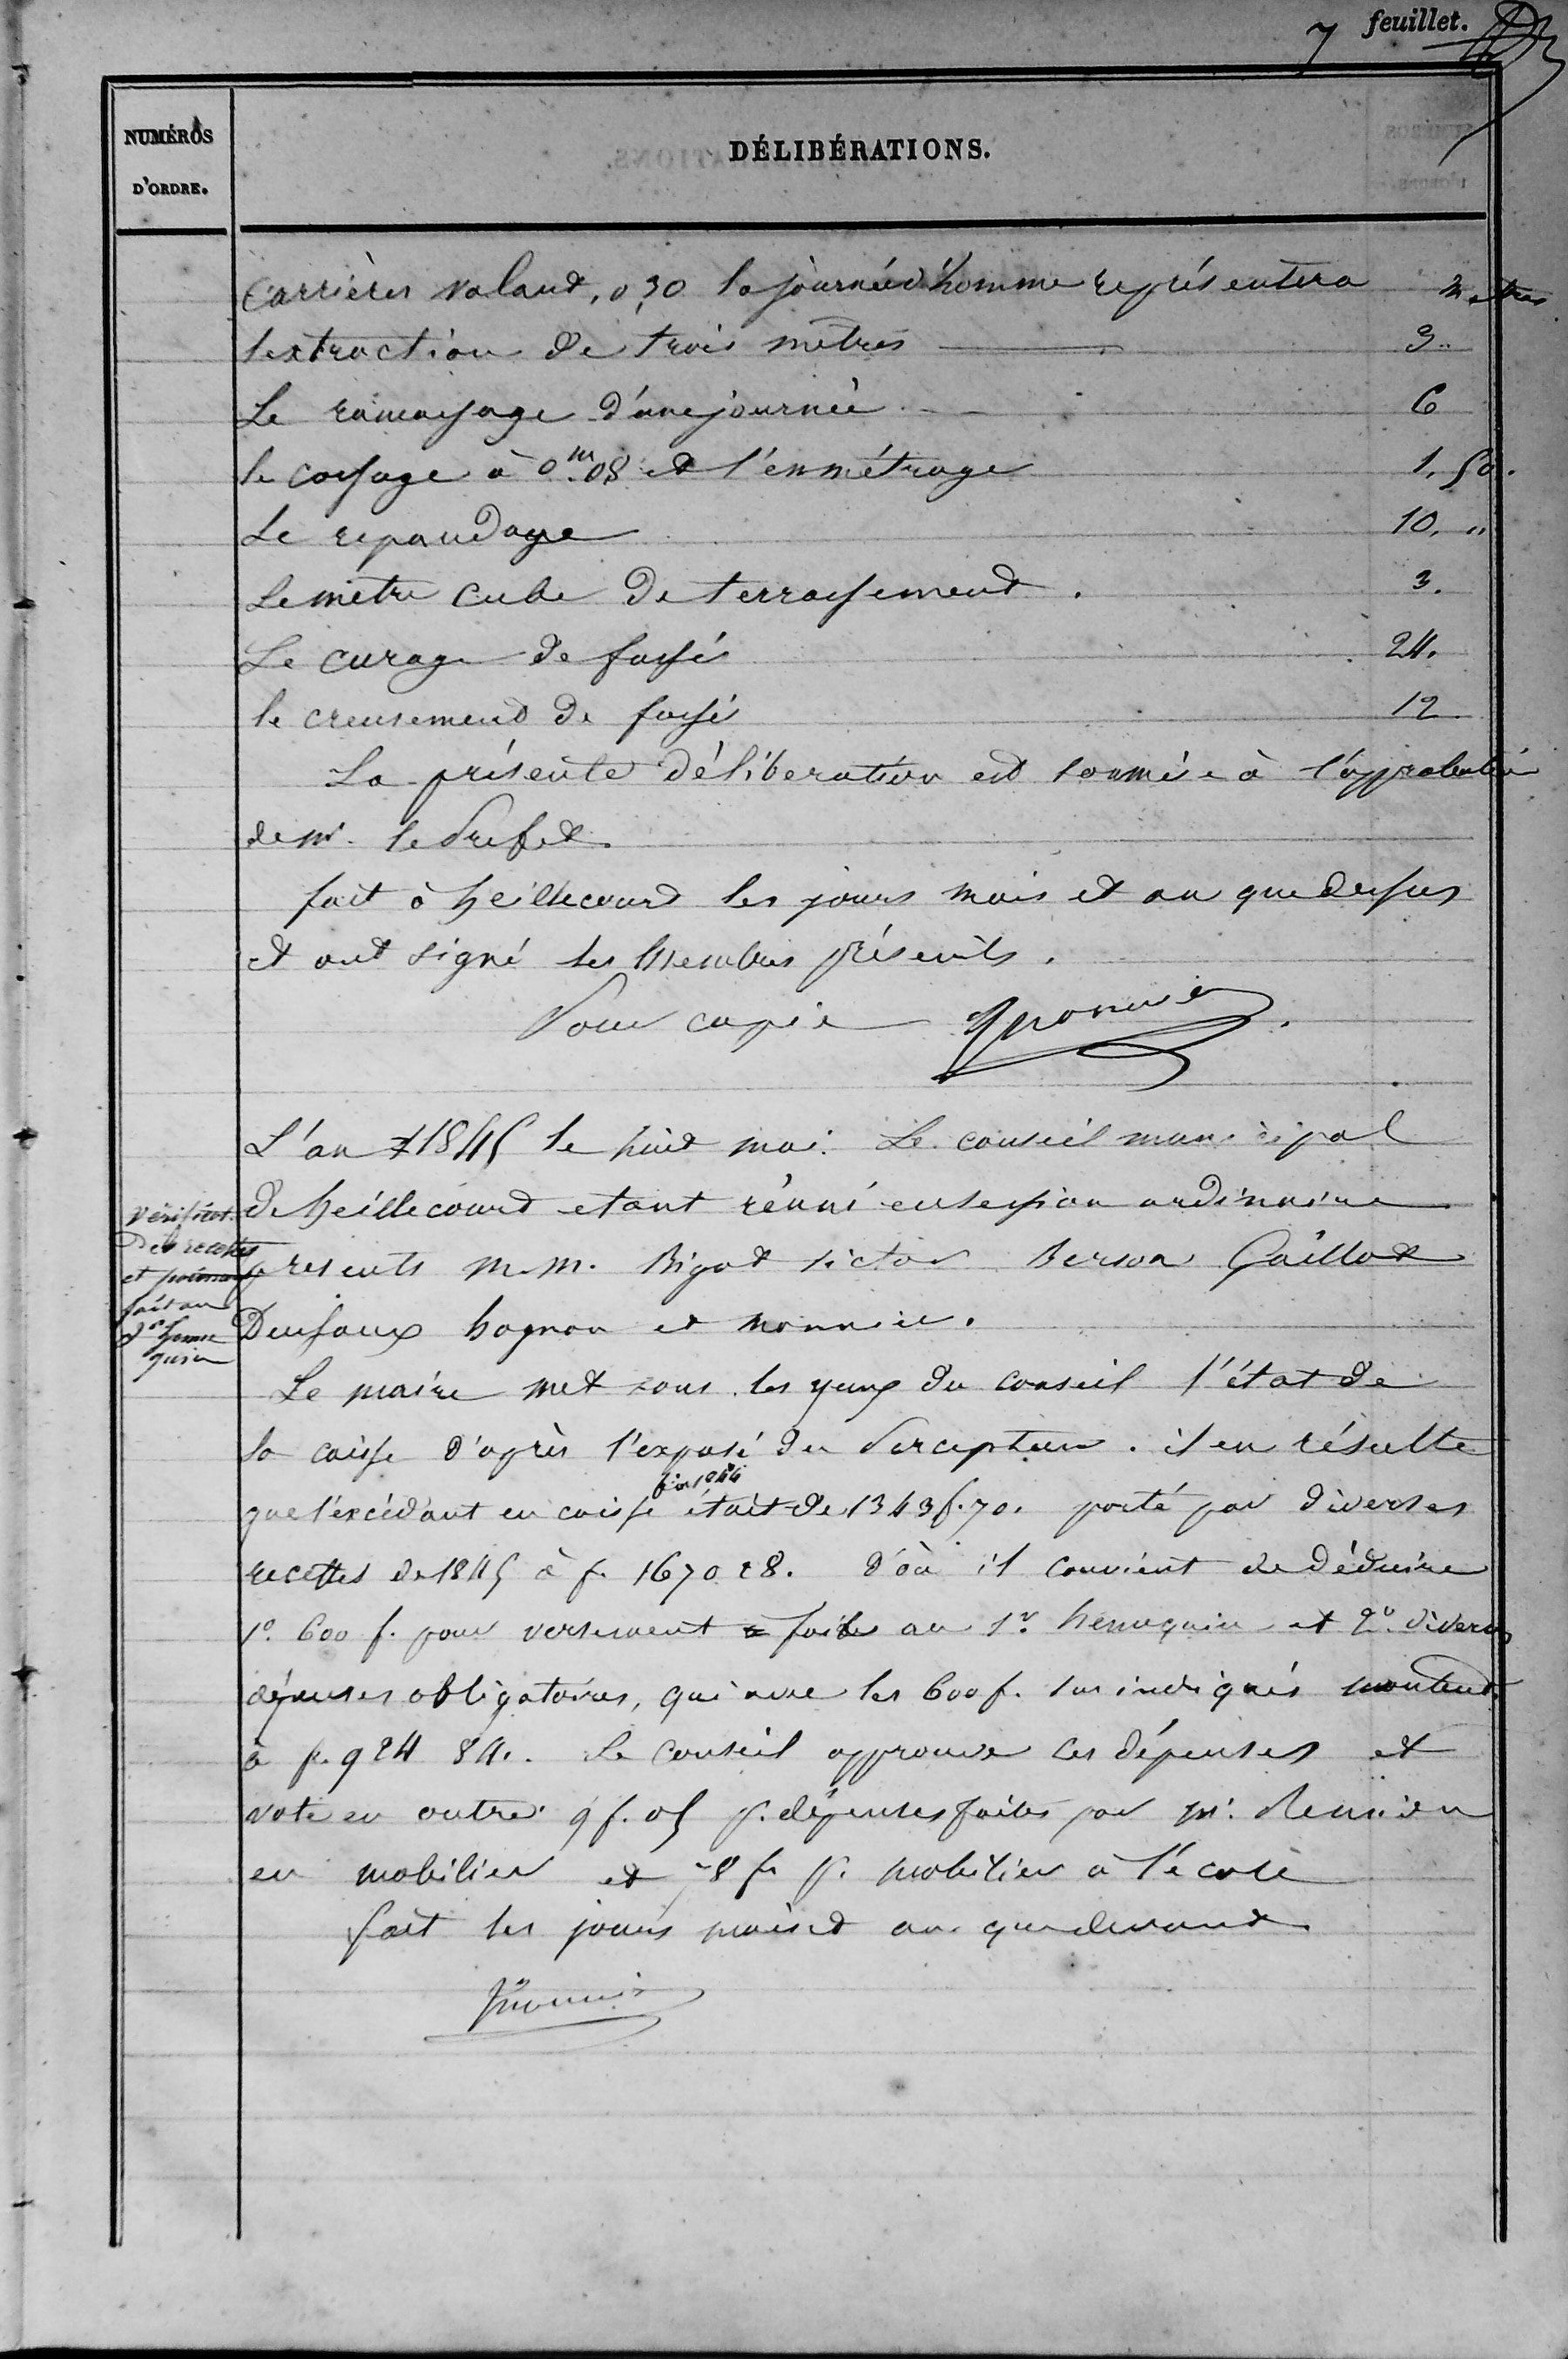 7 feuillet.
NUMÉROS
D'ORDRE.
DÉLIBÉRATIONS.
Carrières valant, 0,30 la journée d'homme représentera mètres
l'extraction de trois mètres 3 "
Le ramassage d'une journée 6
le cassage à 0m.08 et l'enmétrage 1. 50.
Le repandage 10. "
Le mètre cube de terrassement. 3.
Le curage de fossé 24.
le creusement de fossé 12
La présente déliberation est soumise à l'approbation
de Mr. le Prefet.
fait à heillecourt les jours mois et an que dessus
et ont signé les Membres présents.
Pour copie Monnier
L'an 1845 le huit mai. Le conseil municipal
de heillecourt etant réuni en session ordinnaire
presents M.M. Bigot victor Berson Gaillot
hognon et Monnier.
Vérificat.
Des recettes
et
fait au
Sr henne
quin
Le maire met sous les yeux du conseil l'état de
la caisse d'après l'exposé du Percepteur. il en résulte
que l'excédant en caisse fin 1844 était de 1343 f. 70. porté par diverses
recettes de 1845 à f. 1670 28. d'où il convient de déduire
1º. 600 f. pour versement faits au Sr. hennequin et 2º. diverses
dépenses obligatoires, qui avec les 600 f. sus indiqués montent
à f. 924 84. Le Conseil approuve ces dépenses et
vote en outre 9 f. 05 p. dépenses faites par Mr.
en mobilier et 78 f. p. mobilier à l'école
fait les jours mois et an que devant.
Monnier